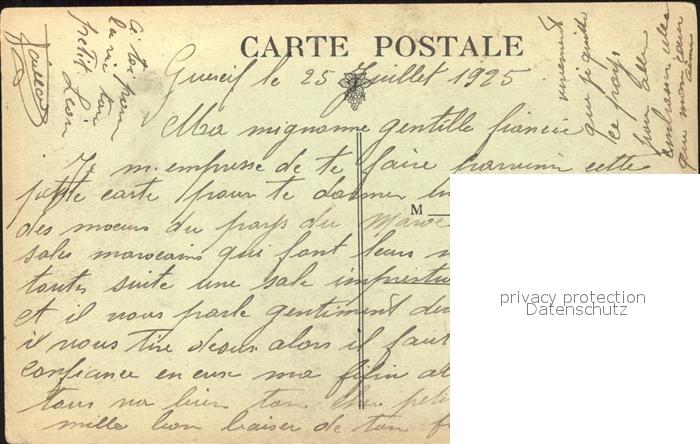 CARTE POSTALE
Guercif le 25 Juillet 1925
Ma mignonne gentille fiancée
Je m'empresse de te faire parvenir cette
petite carte pour te donner
des moeurs du pays du Maroc
M
sales marocains qui font leurs
toutes suite une sale
et il vous parle gentiment
il vous tire desus alors il faut
confiance en eux ma fifin
tous va bien ton
mille bon baiser de ton
A toi pour
la vie ton
petit Léon
vivement
que je quitte
ce pays
pour aller
embrasser celle
que mon cœur
privacy protection
Datenschutz